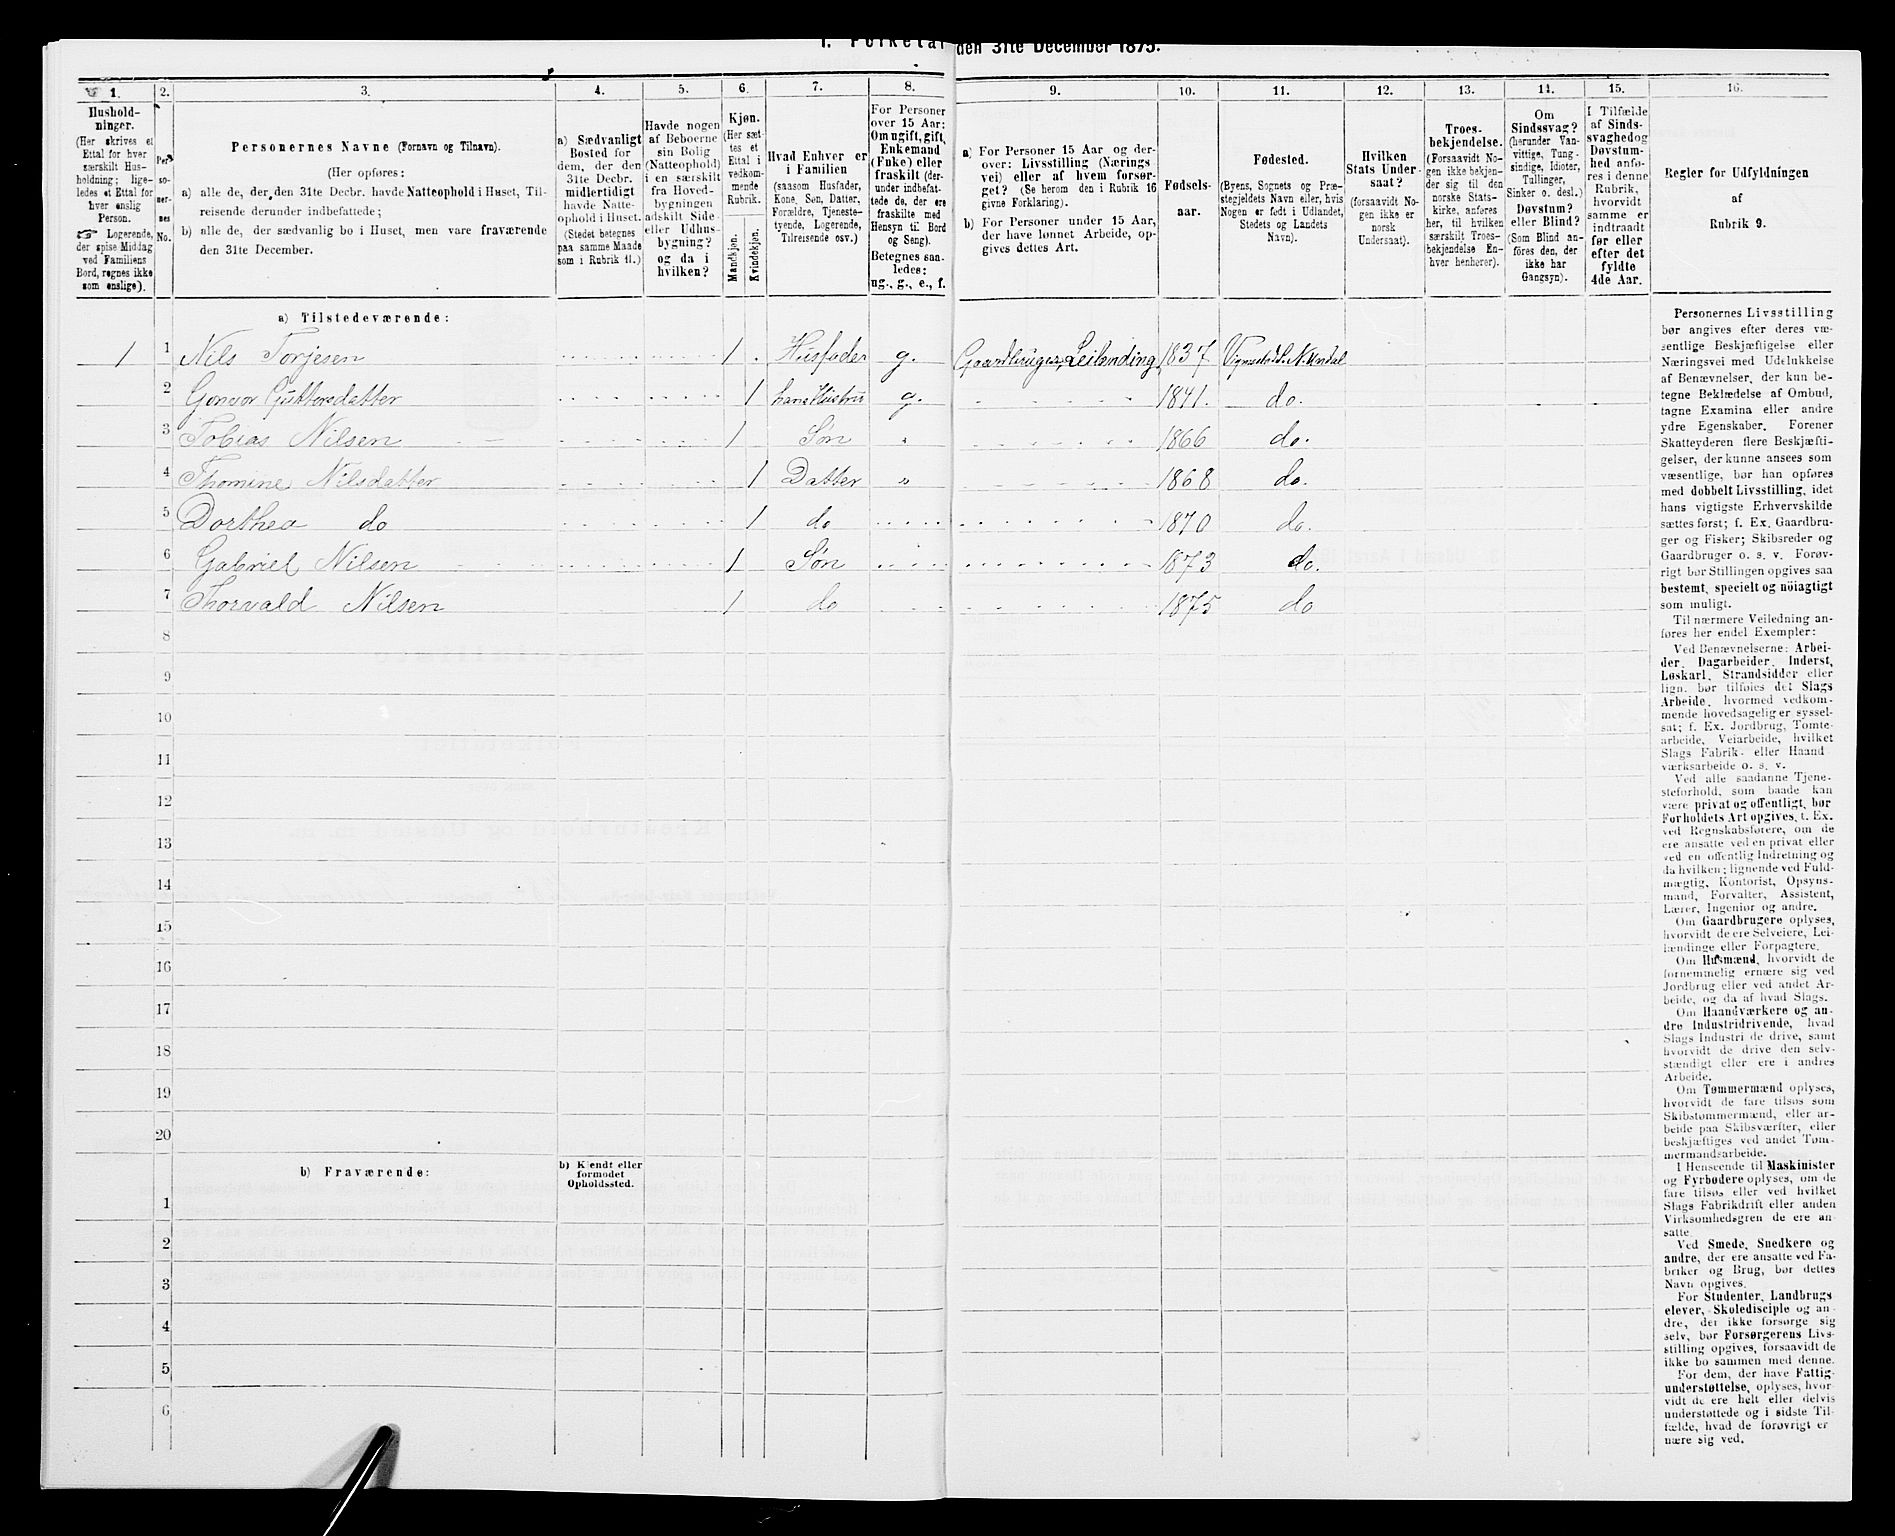 den 31te December 1875.
1. 2. 3. 4. 5. 6. 7. 8. 9. 10. 11. 12. 13. 14. 15. 16.
Hushold-
ninger.
(Her skrives et
Ettal for hver
særskilt Hus-
holdning; lige-
ledes et Ettal for
hver enslig
Person.
Logerende,
der spise Middag
ved Familiens
Bord, regnes ikke
som enslige).
Per-
so-
ner-
nes
No.
Personernes Navne (Fornavn og Tilnavn).
(Her opføres:
a) alle de, der den 31te Decbr. havde Natteophold i Huset, Til-
reisende derunder indbefattede;
b) alle de, der sædvanlig bo i Huset, men vare fraværende
den 31te December.
a) Sædvanligt
Bosted for
dem, der den
31te Decbr.
midlertidigt
havde Natte-
ophold i Huset.
(Stedet betegnes
paa samme Maade
som i Rubrik 11.)
Havde nogen
af Beboerne
sin Bolig
(Natteophold)
i en særskilt
fra Hoved-
bygningen
adskilt Side-
eller Udhus-
bygning?
og da i
hvilken?
Kjøn.
(Her sæt-
tes et
Ettal i
vedkom-
mende
Rubrik.
Mandkjøn.
Kvindekjøn.
Hvad Enhver er
i Familien
(saasom Husfader,
Kone, Søn, Datter,
Forældre, Tjeneste-
tyende, Logerende,
Tilreisende osv.)
For Personer
over 15 Aar:
Om ugift, gift,
Enkemand
(Enke) eller
fraskilt (der-
under indbefat-
tede de, der ere
fraskilte med
Hensyn til Bord
og Seng).
Betegnes saa-
ledes:
ug., g., e., f.
a) For Personer 15 Aar og der-
over: Livsstilling (Nærings-
vei) eller af hvem forsør-
get? (Se herom den i Rubrik 16
givne Forklaring).
b) For Personer under 15 Aar,
der have lønnet Arbeide, op-
gives dettes Art.
Fødsels-
aar.
Fødested.
(Byens, Sognets og Præ-
stegjeldets Navn eller, hvis
Nogen er født i Udlandet,
Stedets og Landets
Navn).
Hvilken
Stats Under-
saat?
(forsaavidt No-
gen ikke er
norsk
Undersaat).
Troes-
bekjendelse.
(Forsaavidt No-
gen ikke bekjen-
der sig til den
norske Stats-
kirke, anføres
her, til hvilken
særskilt Troes-
bekjendelse En-
hver henhører).
Om
Sindssvag?
(herunder Van-
vittige, Tung-
sindige, Idioter,
Tullinger,
Sinker o. desl.)
Døvstum?
eller Blind?
(Som Blind an-
føres den, der
ikke har
Gangsyn).
I Tilfælde
af Sinds-
svaghed og
Døvstum-
hed anfø-
res i denne
Rubrik,
hvorvidt
samme er
indtraadt
før eller
efter det
fyldte
4de Aar.
Regler for Udfyldningen
af
Rubrik 9.
a) Tilstedeværende:
1 1 Nils Torjesen 1 Husfader g. Gaardbruger, Leilænding 1837
2 1 g. 1841. do.
3 Tobias Nilsen 1 Søn 1866 do.
4 Thomine Nilsdatter 1 Datter 1868 do.
5 Dorthea do 1 do 1870 do.
6 Gabriel Nilsen 1 Søn 1873 do.
7 Thorvald Nilsen 1 do 1875 do
8
9
10
11
12
13
14
15
16
17
18
19
20
b) Fraværende:
b) Kjendt eller
formodet
Opholdssted.
1
2
3
4
5
6
Personernes Livsstilling
bør angives efter deres væ-
sentlige Beskjæftigelse eller
Næringsvei med Udelukkelse
af Benævnelser, der kun be-
tegne Beklædelse af Ombud,
tagne Examina eller andre
ydre Egenskaber. Forener
Skatteyderen flere Beskjæfti-
gelser, der kunne ansees som
væsentlige, bør han opføres
med dobbelt Livsstilling, idet
hans vigtigste Erhvervskilde
sættes først; f. Ex. Gaardbru-
ger og Fisker; Skibsreder og
Gaardbruger o. s. v. Forøv-
rigt bør Stillingen opgives saa
bestemt, specielt og nöiagtigt
som muligt.
Til nærmere Veiledning an-
føres her endel Exempler:
Ved Benævnelserne: Arbei-
der, Dagarbeider, Inderst,
Løskarl, Strandsidder eller
lign. bør tilføies det Slags
Arbeide, hvormed vedkom-
mende hovedsagelig er syssel-
sat; f. Ex. Jordbrug, Tomte-
arbeide, Veiarbeide, hvilket
Slags Fabrik- eller Haand-
værksarbeide o. s. v.
Ved alle saadanne Tjene-
steforhold, som baade kan
være privat og offentligt, bør
Forholdets Art opgives, f. Ex.
ved Regnskabsførere, om de
ere ansatte ved en privat eller
ved en offentlig Indretning og
da hvilken; lignende ved Fuld-
mægtig, Kontorist, Opsyns-
mand, Forvalter, Assistent,
Lærer, Ingeniør og andre.
Om Gaardbrugere oplyses,
hvorvidt de ere Selveiere, Lei-
lændinge eller Forpagtere.
Om Husmænd, hvorvidt de
fornemmelig ernære sig ved
Jordbrug eller ved andet Ar-
beide, og da af hvad Slags.
Om Haandværkere og an-
dre Industridrivende, hvad
Slags Industri de drive, samt
hvorvidt de drive den selv-
stændigt eller ere i andres
Arbeide.
Om Tømmermænd oplyses,
hvorvidt de fare tilsøs som
Skibstømmermænd, eller ar-
beide paa Skibsværfter, eller
beskjæftiges ved andet Tøm-
mermandsarbeide.
I Henseende til Maskinister
og Fyrbødere oplyses, om de
fare tilsøs eller ved hvilket
Slags Fabrikdrift eller anden
Virksomhedsgren de ere an-
satte.
Ved Smede, Snedkere og
andre, der ere ansatte ved Fa-
briker og Brug, bør dettes
Navn opgives.
For Studenter, Landbrugs-
elever, Skoledisciple og an-
dre, der ikke forsørge sig
selv, bør Forsørgerens Livs-
stilling opgives, forsaavidt de
ikke bo sammen med denne.
For dem, der have Fattig-
understøttelse, oplyses, hvor-
vidt de ere helt eller delvis
understøttede og i sidste Til-
fælde, hvad de forøvrigt er-
nære sig ved.